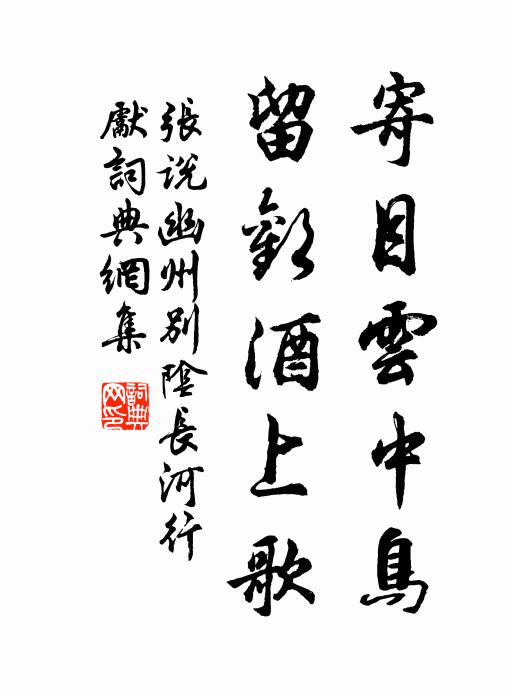 寄目雲中鳥
留歡酒上歌
張說幽州別陰長河行
獻詞典網集
詞典網印